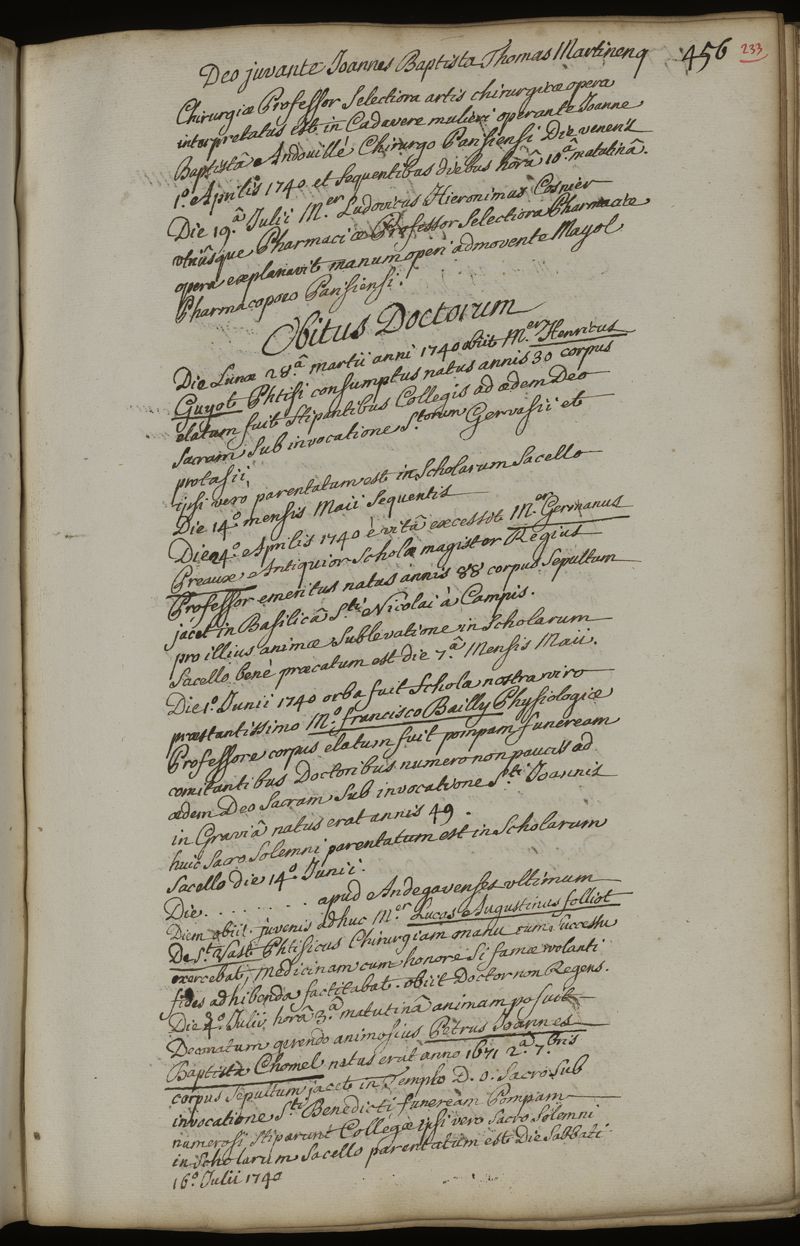 456 233
Deo juvante Joannes Baptista Thomas Martinenq
Chirurgiæ Professor Selectiora artis chirurgicæ opera
interpretatus est in Cadavere mulieri operante Joanne
Baptistâ Andouillé Chirurgo Parisiensi Die veneris
1.º Aprilis 1740 et sequentibus diebus horâ 10.ª matutinâ.
Die 19.ª Julii M.er Ludovicus Hieronimus Cosnier
utriûsque Pharmaciæ Professor Selectiora Pharmaciæ
opera explanavit manum operi admovente Mayol
Pharmacopœo Parisiensi.
Obitus Doctorum
Die Lunæ 28.ª martii anni 1740 obiit M.er Henricus
Guyot Phtisi consumptus natus annis 30 corpus
elatum fuit stipantibus Collegis ad ædem Deo
Sacram Sub invocatione S.torum Gervasii et
protasii,
ipsi verò parentatum est in Scholarum Sacello
Die 14.º mensis Maii Sequentis
Die 24.º Aprilis 1740 è vitâ excessit M.er Germanus
Preaux Antiquior Scholæ magister Regius
Professor emeritus natus annis 88 corpus Sepultum
jacet in Basilicâ S.ti Nicolai à Campis.
pro illius animæ Sublevatione in Scholarum
Sacello benè præcatum est die 7.ª Mensis Maii.
Die 1.º Junii 1740 orba fuit Schola nostra viro
præstantissimo M.º francisco Bailly Physiologiæ
Professore corpus elatum fuit pompam funeream
comitantibus Doctoribus numero non paucis ad
ædem Deo Sacram Sub invocatione S.ti Joannis
in Graviâ natus erat annis 49.
huic Sacro Solemni parentatum est in Scholarum
Sacello die 14.º Junii.
Die . . . . . . . . apud Andegavenses ultimum
Diem obiit juvenis adhuc M.er Lucas Augustinus folliot
De S.t Vast Phtisicus Chirurgiam manu cum Successu
exercebat, Medicinam cum honore si famæ volanti
fides adhibenda factitabat. obiit Doctor non Regens.
Die 3.º Julii, horâ 3.ª matutinâ animam posuit
Deconatum gerendo animosius Petrus Joannes
Baptista Chomel natus erat anno 1671 2.ª 7.bris
corpus Sepultum jacet in Templo D. O. Sacro Sub
invocatione S.ti Benedicti funeream Pompam
numerosi stiparunt Collegæ ipsi vero Sacro Solemni
in Scholarum Sacello parentatum est Die Sabbati
16.º Julii 1740